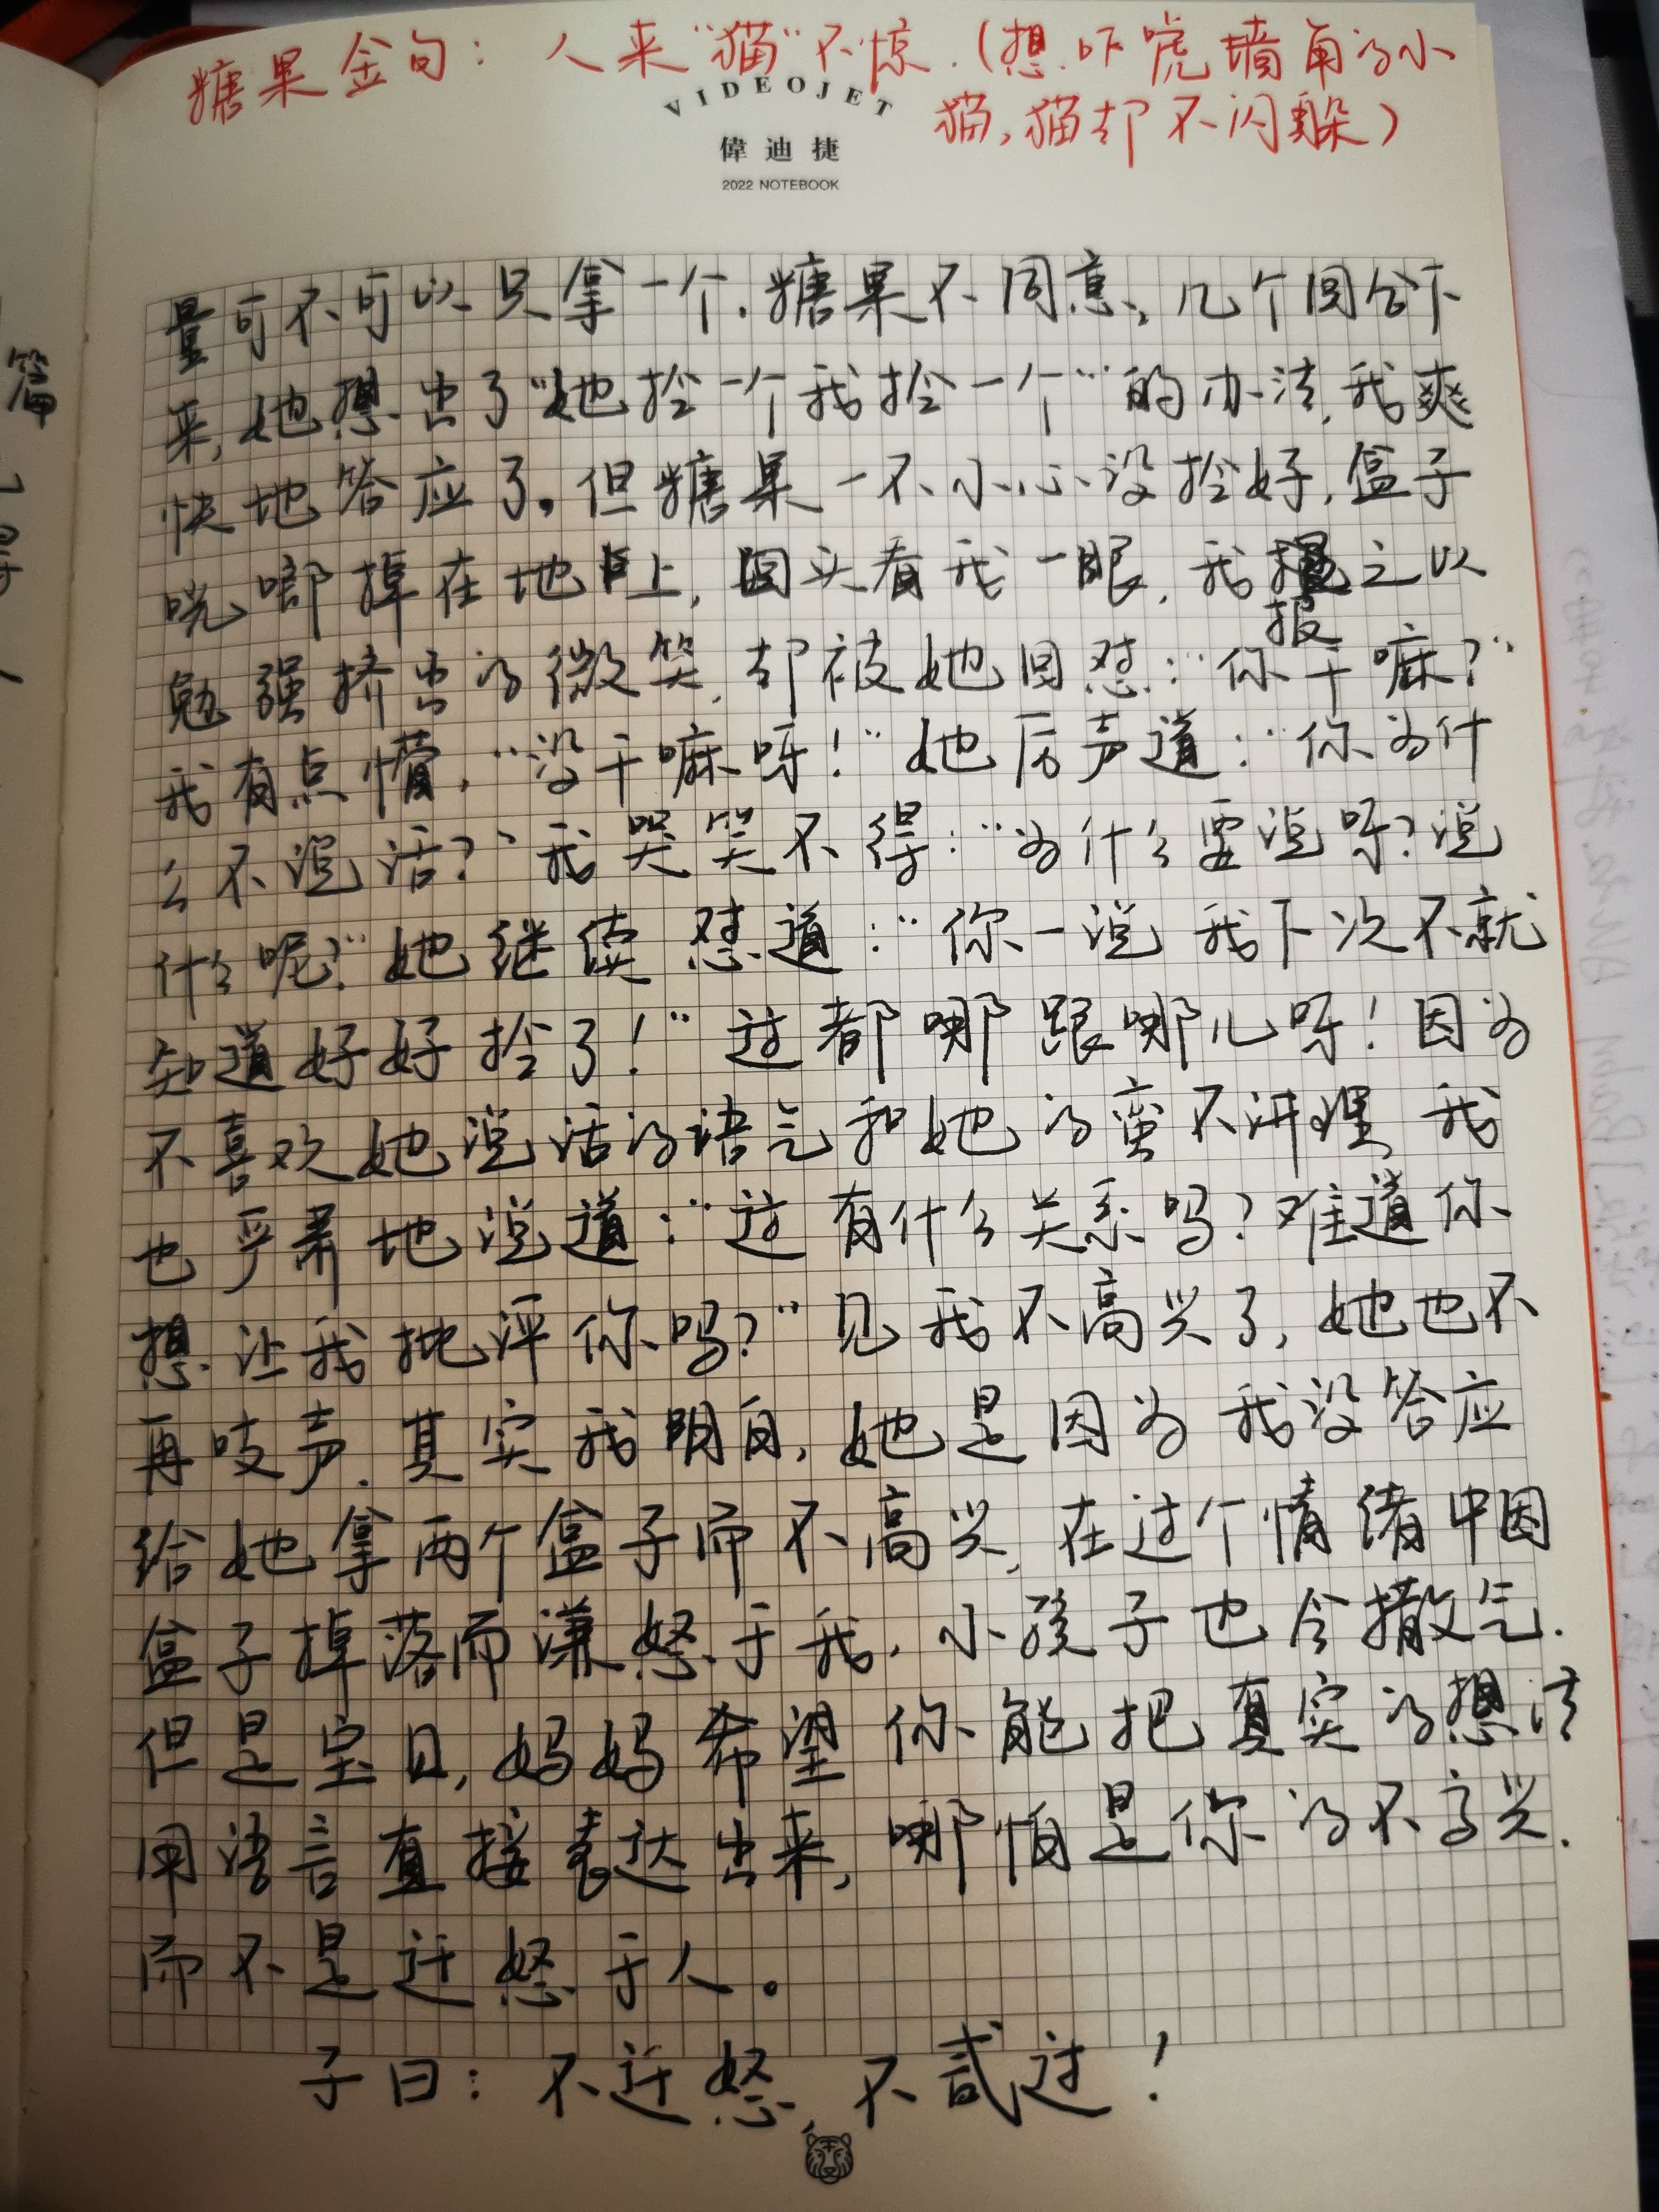 糖果金句：人来“猫”不惊.(想吓唬墙角的小
猫,猫却不闪躲)
VIDEOJET
偉迪捷
2022 NOTEBOOK
篇
量可不可以只拿一个.糖果不同意,几个回合下
来,她想出了“她拎一个我拎一个”的办法,我爽
快地答应了。但糖果一不小心没拎好,盒子
咣啷掉在地上,回头看我一眼,我报之以
勉强挤出的微笑,却被她回怼:“你干嘛?”
我有点懵,“没干嘛呀!”她厉声道:“你为什
么不说话?”我哭笑不得:“为什么要说呀?说
什么呢?”她继续怼道:“你一说我下次不就
知道好好拎了!”这都哪跟哪儿呀!因为
不喜欢她说话的语气和她的蛮不讲理,我
也严肃地说道:“这有什么关系吗?难道你
想让我批评你吗?”见我不高兴了,她也不
再吱声.其实我明白,她是因为我没答应
给她拿两个盒子而不高兴,在这个情绪中因
盒子掉落而迁怒于我,小孩子也会撒气.
但是宝贝,妈妈希望你能把真实的想法
用语言直接表达出来,哪怕是你的不高兴.
而不是迁怒于人。
子曰:不迁怒,不贰过!